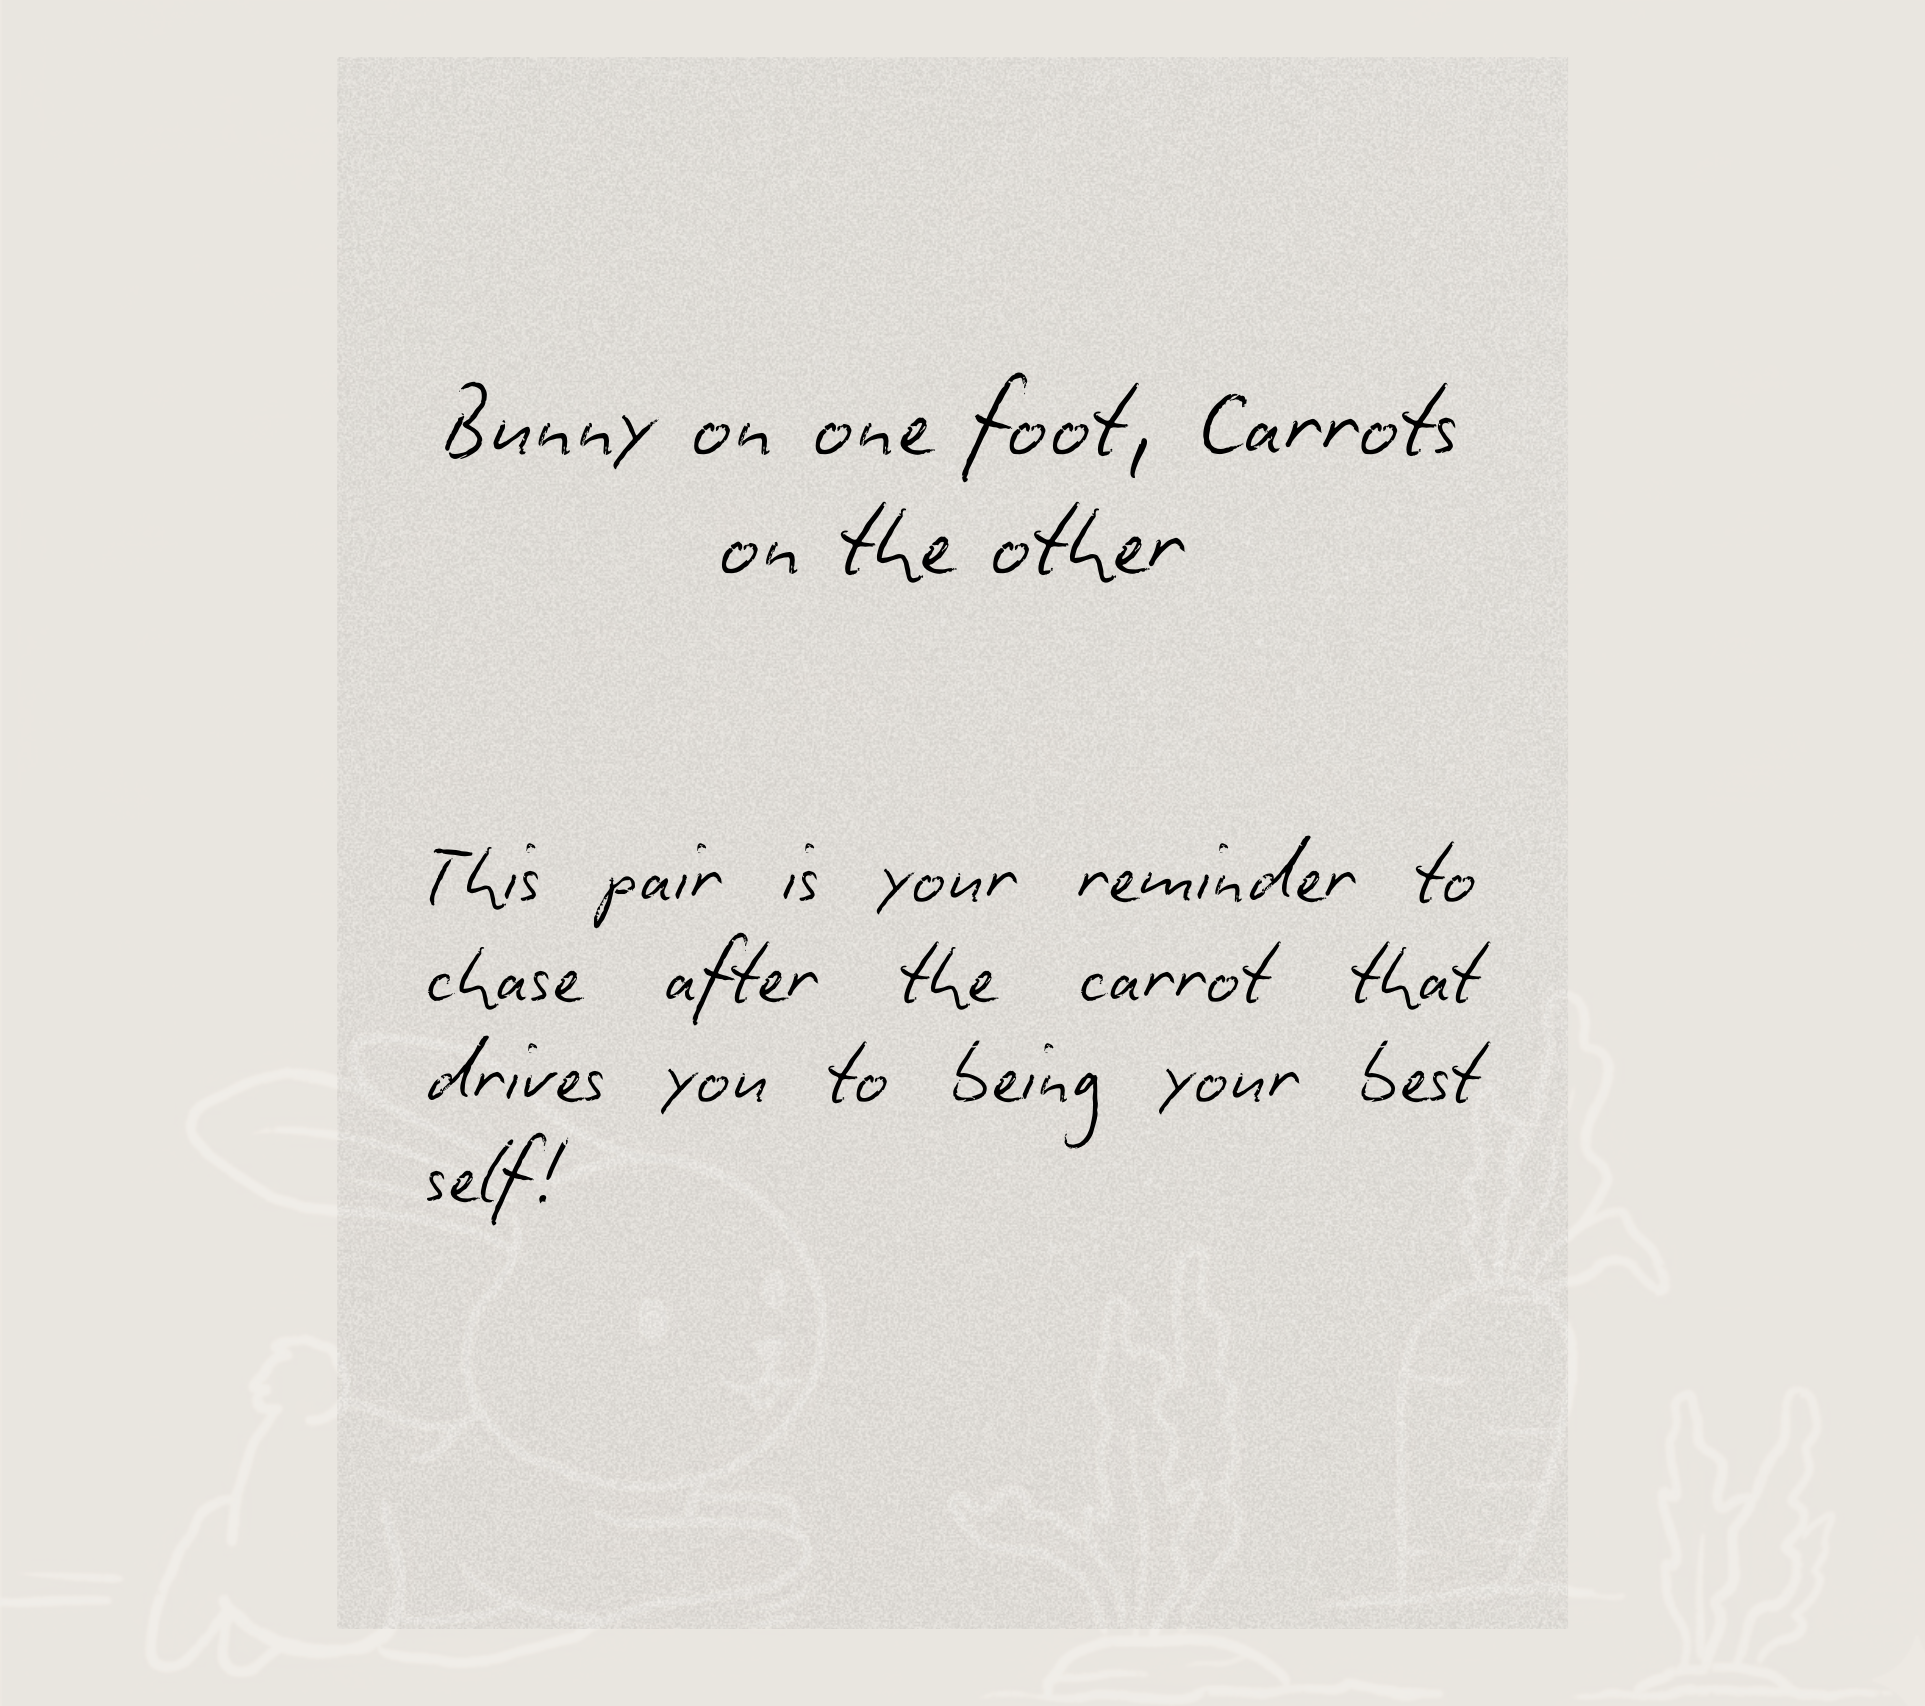 Bunny on one foot, Carrots
on the other
This pair is your reminder to
chase after the carrot that
drives you to being your best
self!